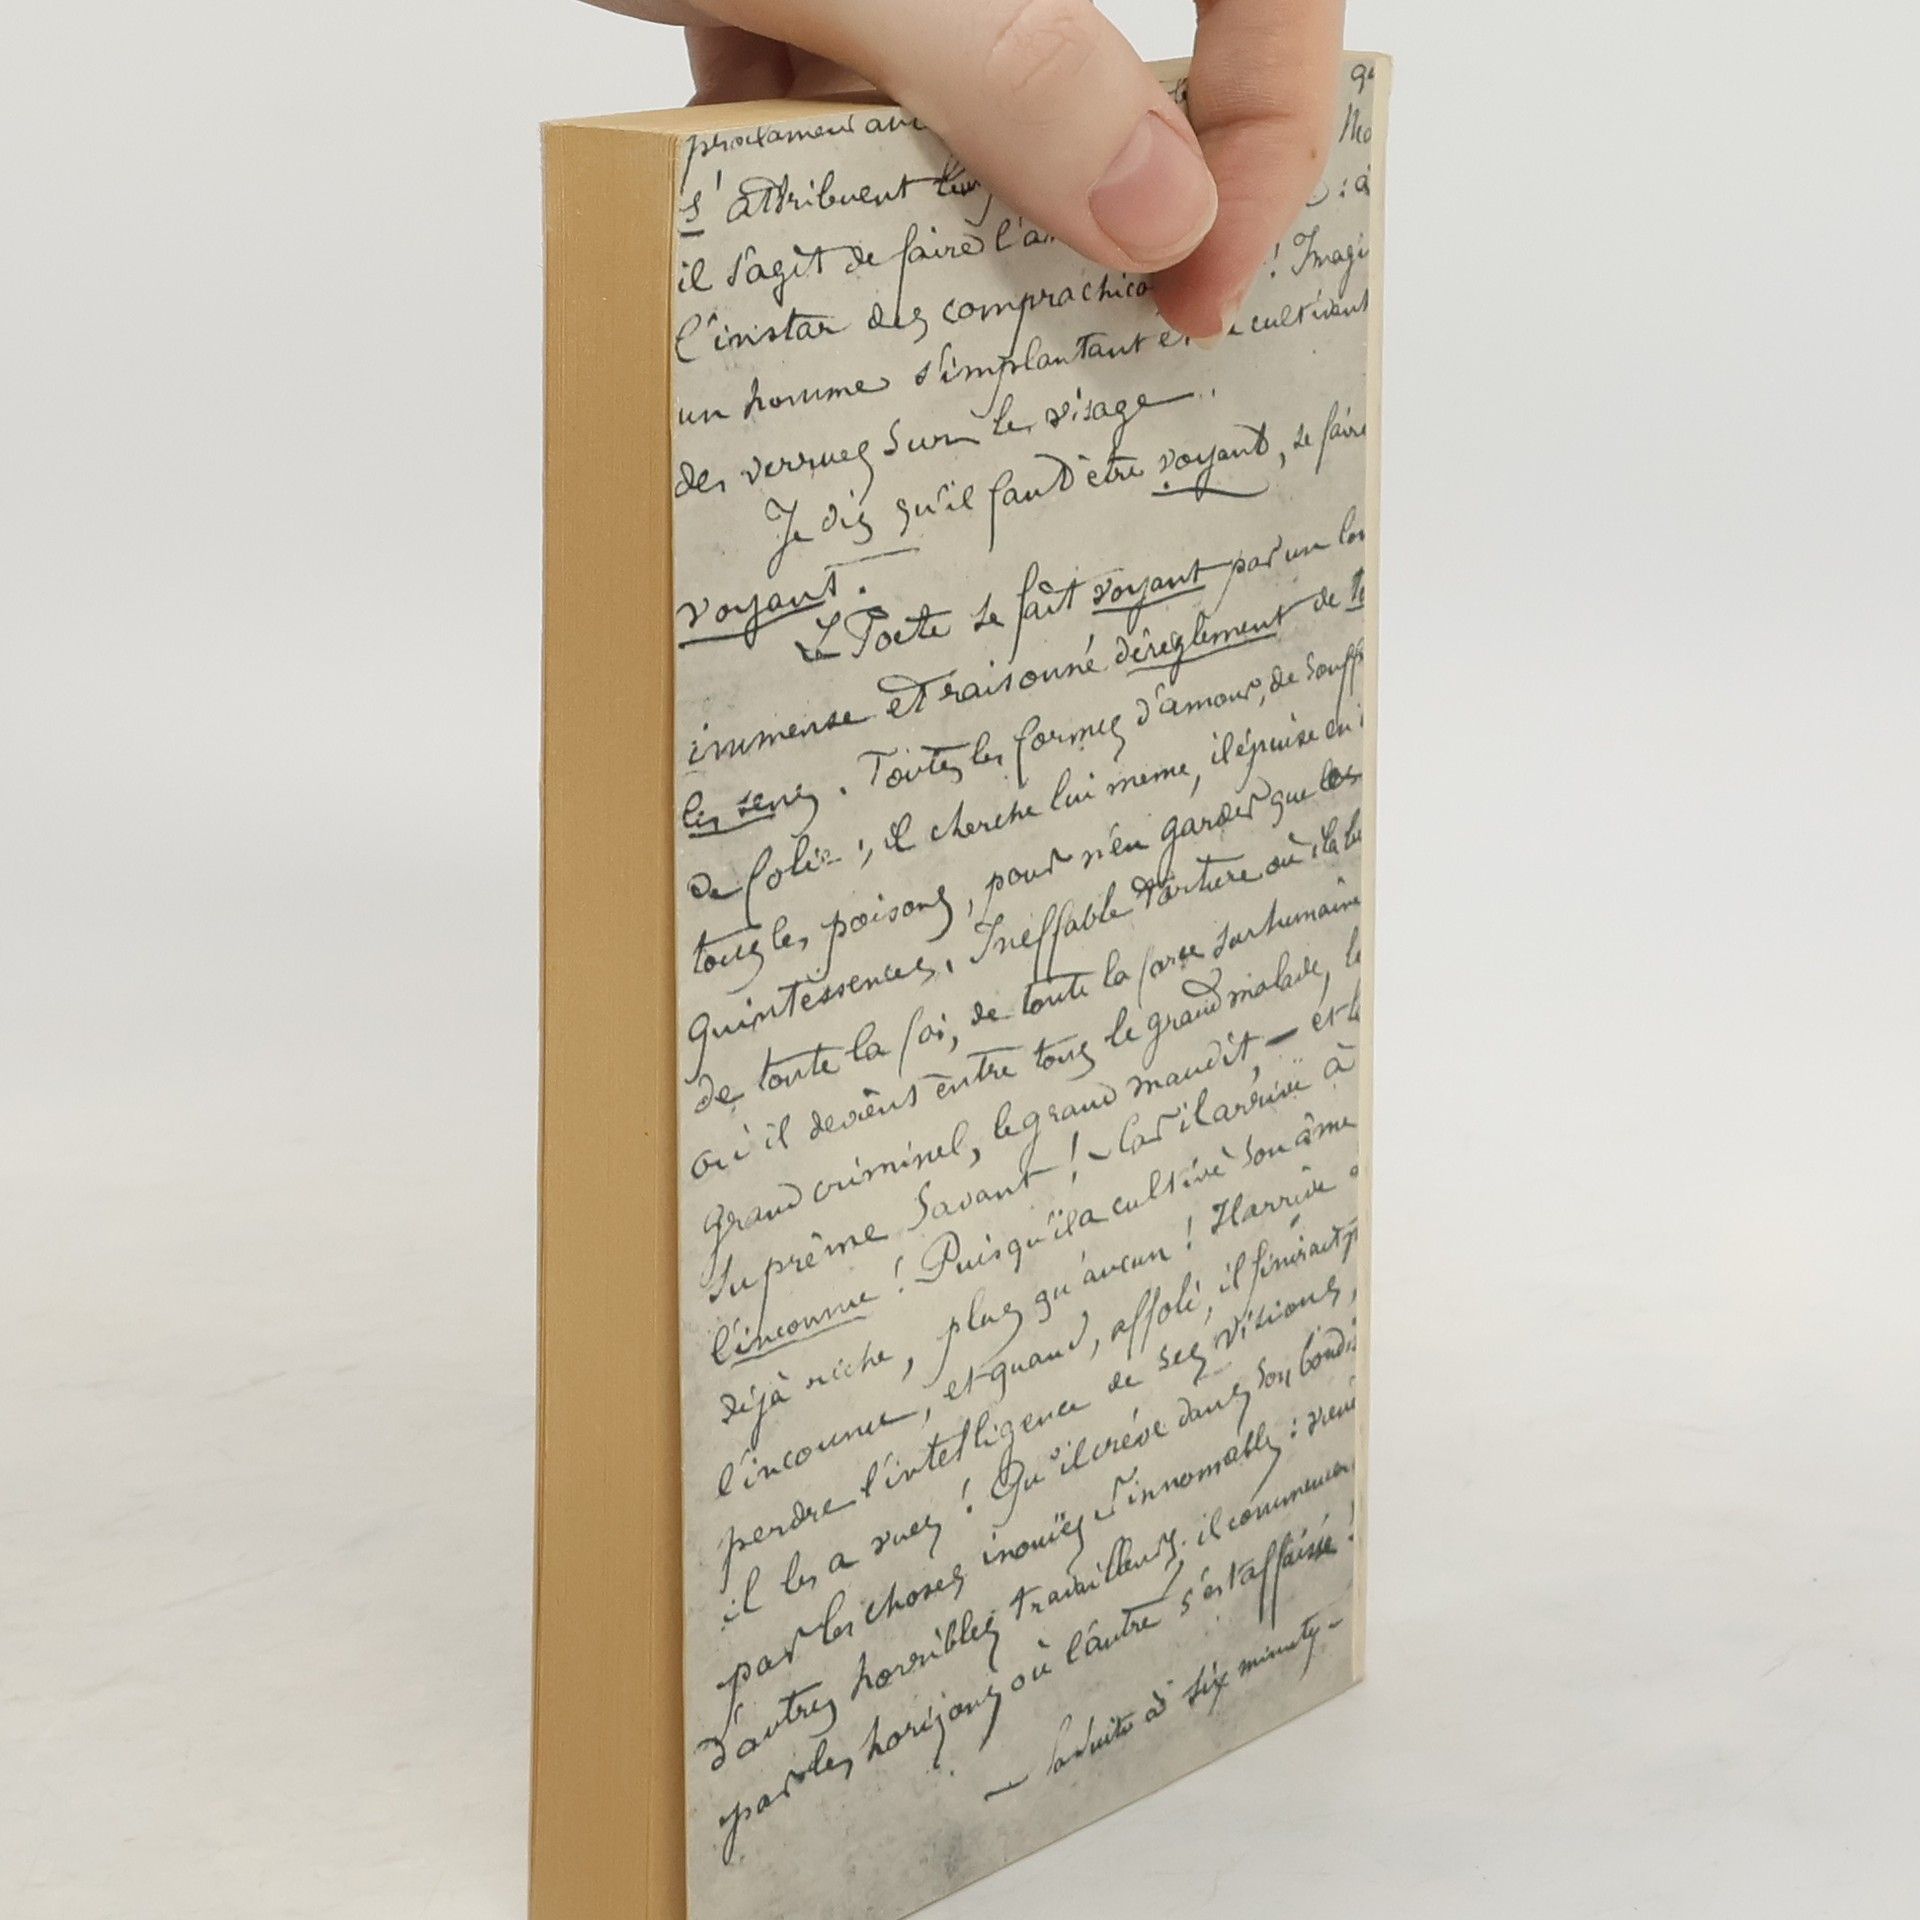 proclament au
s'attribuent leur
il s'agit de faire l'â : à
l'instar des comprachico ! Imagi
un homme s'implantant et se cultivant
des verrues sur le visage.
Je dis qu'il faut être voyant, se faire
voyant.
Le Poete se fait voyant par un lon
immense et raisonné déréglement de to
les sens. Toutes les formes d'amour, de souff
de folie ; il cherche lui meme, il épuise en
tous les poisons, pour n'en garder que les
quintessences. Ineffable torture où il a be
de toute la foi, de toute la force surhumaine
où il devient entre tous le grand malade, le
grand criminel, le grand maudit, — et le
suprême Savant ! — Car il arrive à
l'inconnu ! Puisqu'il a cultivé son âme
déjà riche, plus qu'aucun ! Il arrive à
l'inconnu, et quand, affolé, il finirait p
perdre l'intelligence de ses visions,
il les a vues ! Qu'il crève dans son bondis
par les choses inouïes et innomables : vien
d'autres horribles travailleurs ; il commencer
par les horizons où l'autre s'est affaissé !
— la suite à six minutes —